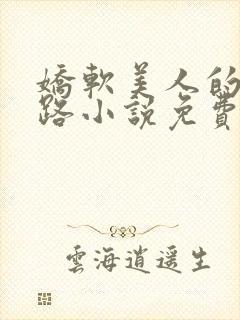 嬌軟美人的
路小說免費
雲海逍遥生